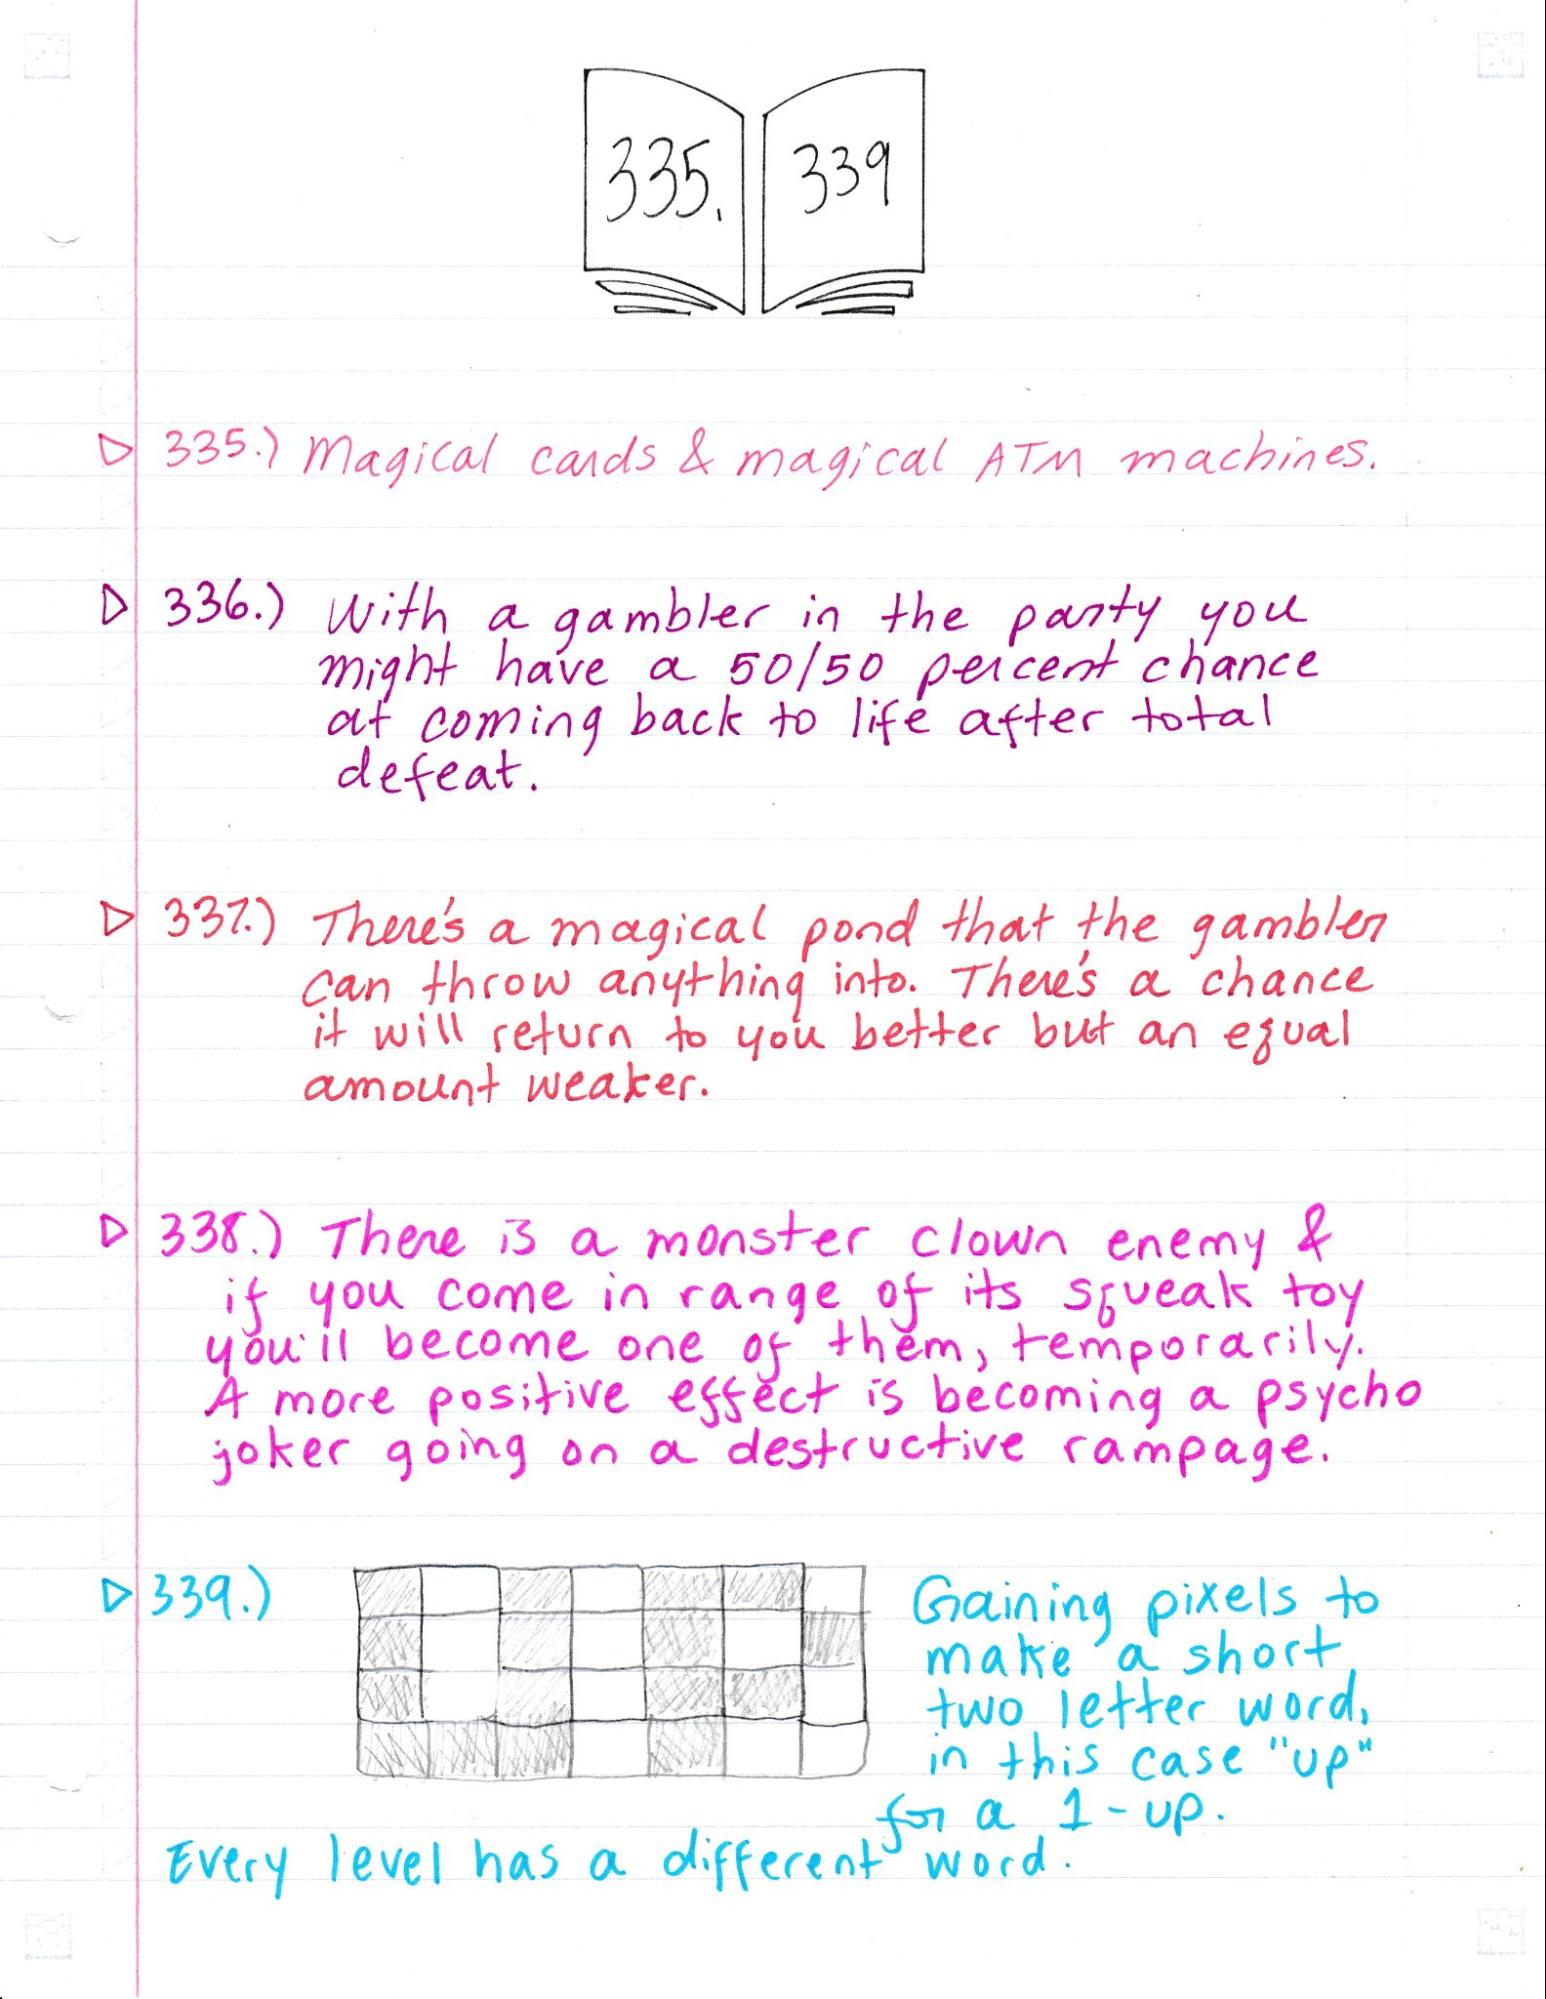 335. 339
335.) Magical cards & magical ATM machines.
336.) With a gambler in the party you
might have a 50/50 percent chance
at coming back to life after total
defeat.
337.) There's a magical pond that the gambler
can throw anything into. There's a chance
it will return to you better but an equal
amount weaker.
338.) There is a monster clown enemy &
if you come in range of its squeak toy
you'll become one of them, temporarily.
A more positive effect is becoming a psycho
joker going on a destructive rampage.
339.) Gaining pixels to
make a short,
two letter word,
in this case "up"
for a 1-up.
Every level has a different word.